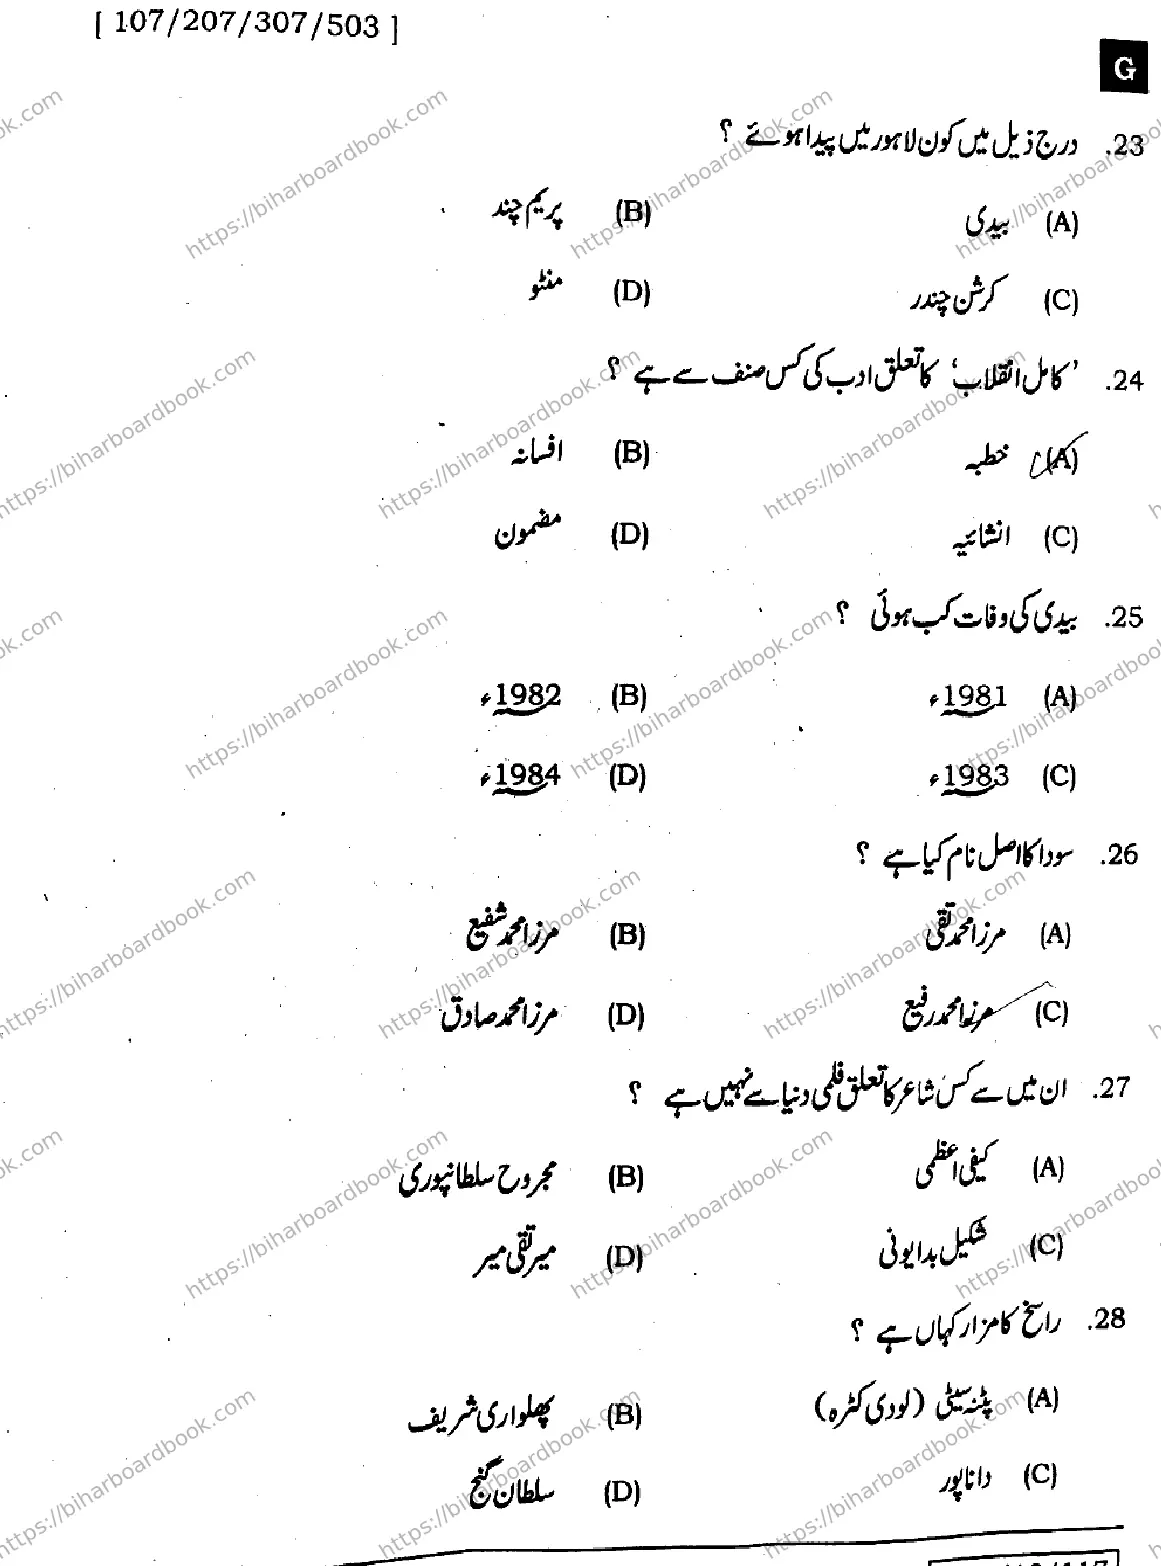 [ 107/207/307/503 ]
G
23. درج ذیل میں کون لاہور میں پیدا ہوئے ؟
(A) بیدی (B) پریم چند
(C) کرشن چندر (D) منٹو
24. ’کامل انقلاب‘ کا تعلق ادب کی کس صنف سے ہے ؟
(A) خطبہ (B) افسانہ
(C) انشائیہ (D) مضمون
25. بیدی کی وفات کب ہوئی ؟
(A) 1981ء (B) 1982ء
(C) 1983ء (D) 1984ء
26. سودا کا اصل نام کیا ہے ؟
(A) مرزا محمد تقی (B) مرزا محمد شفیع
(C) مرزا محمد رفیع (D) مرزا محمد صادق
27. ان میں سے کس شاعر کا تعلق فلمی دنیا سے نہیں ہے ؟
(A) کیفی اعظمی (B) مجروح سلطانپوری
(C) شکیل بدایونی (D) میر تقی میر
28. راسخ کا مزار کہاں ہے ؟
(A) پٹنہ سیٹی (لودی کٹرہ) (B) پھلواری شریف
(C) داناپور (D) سلطان گنج
https://biharboardbook.com